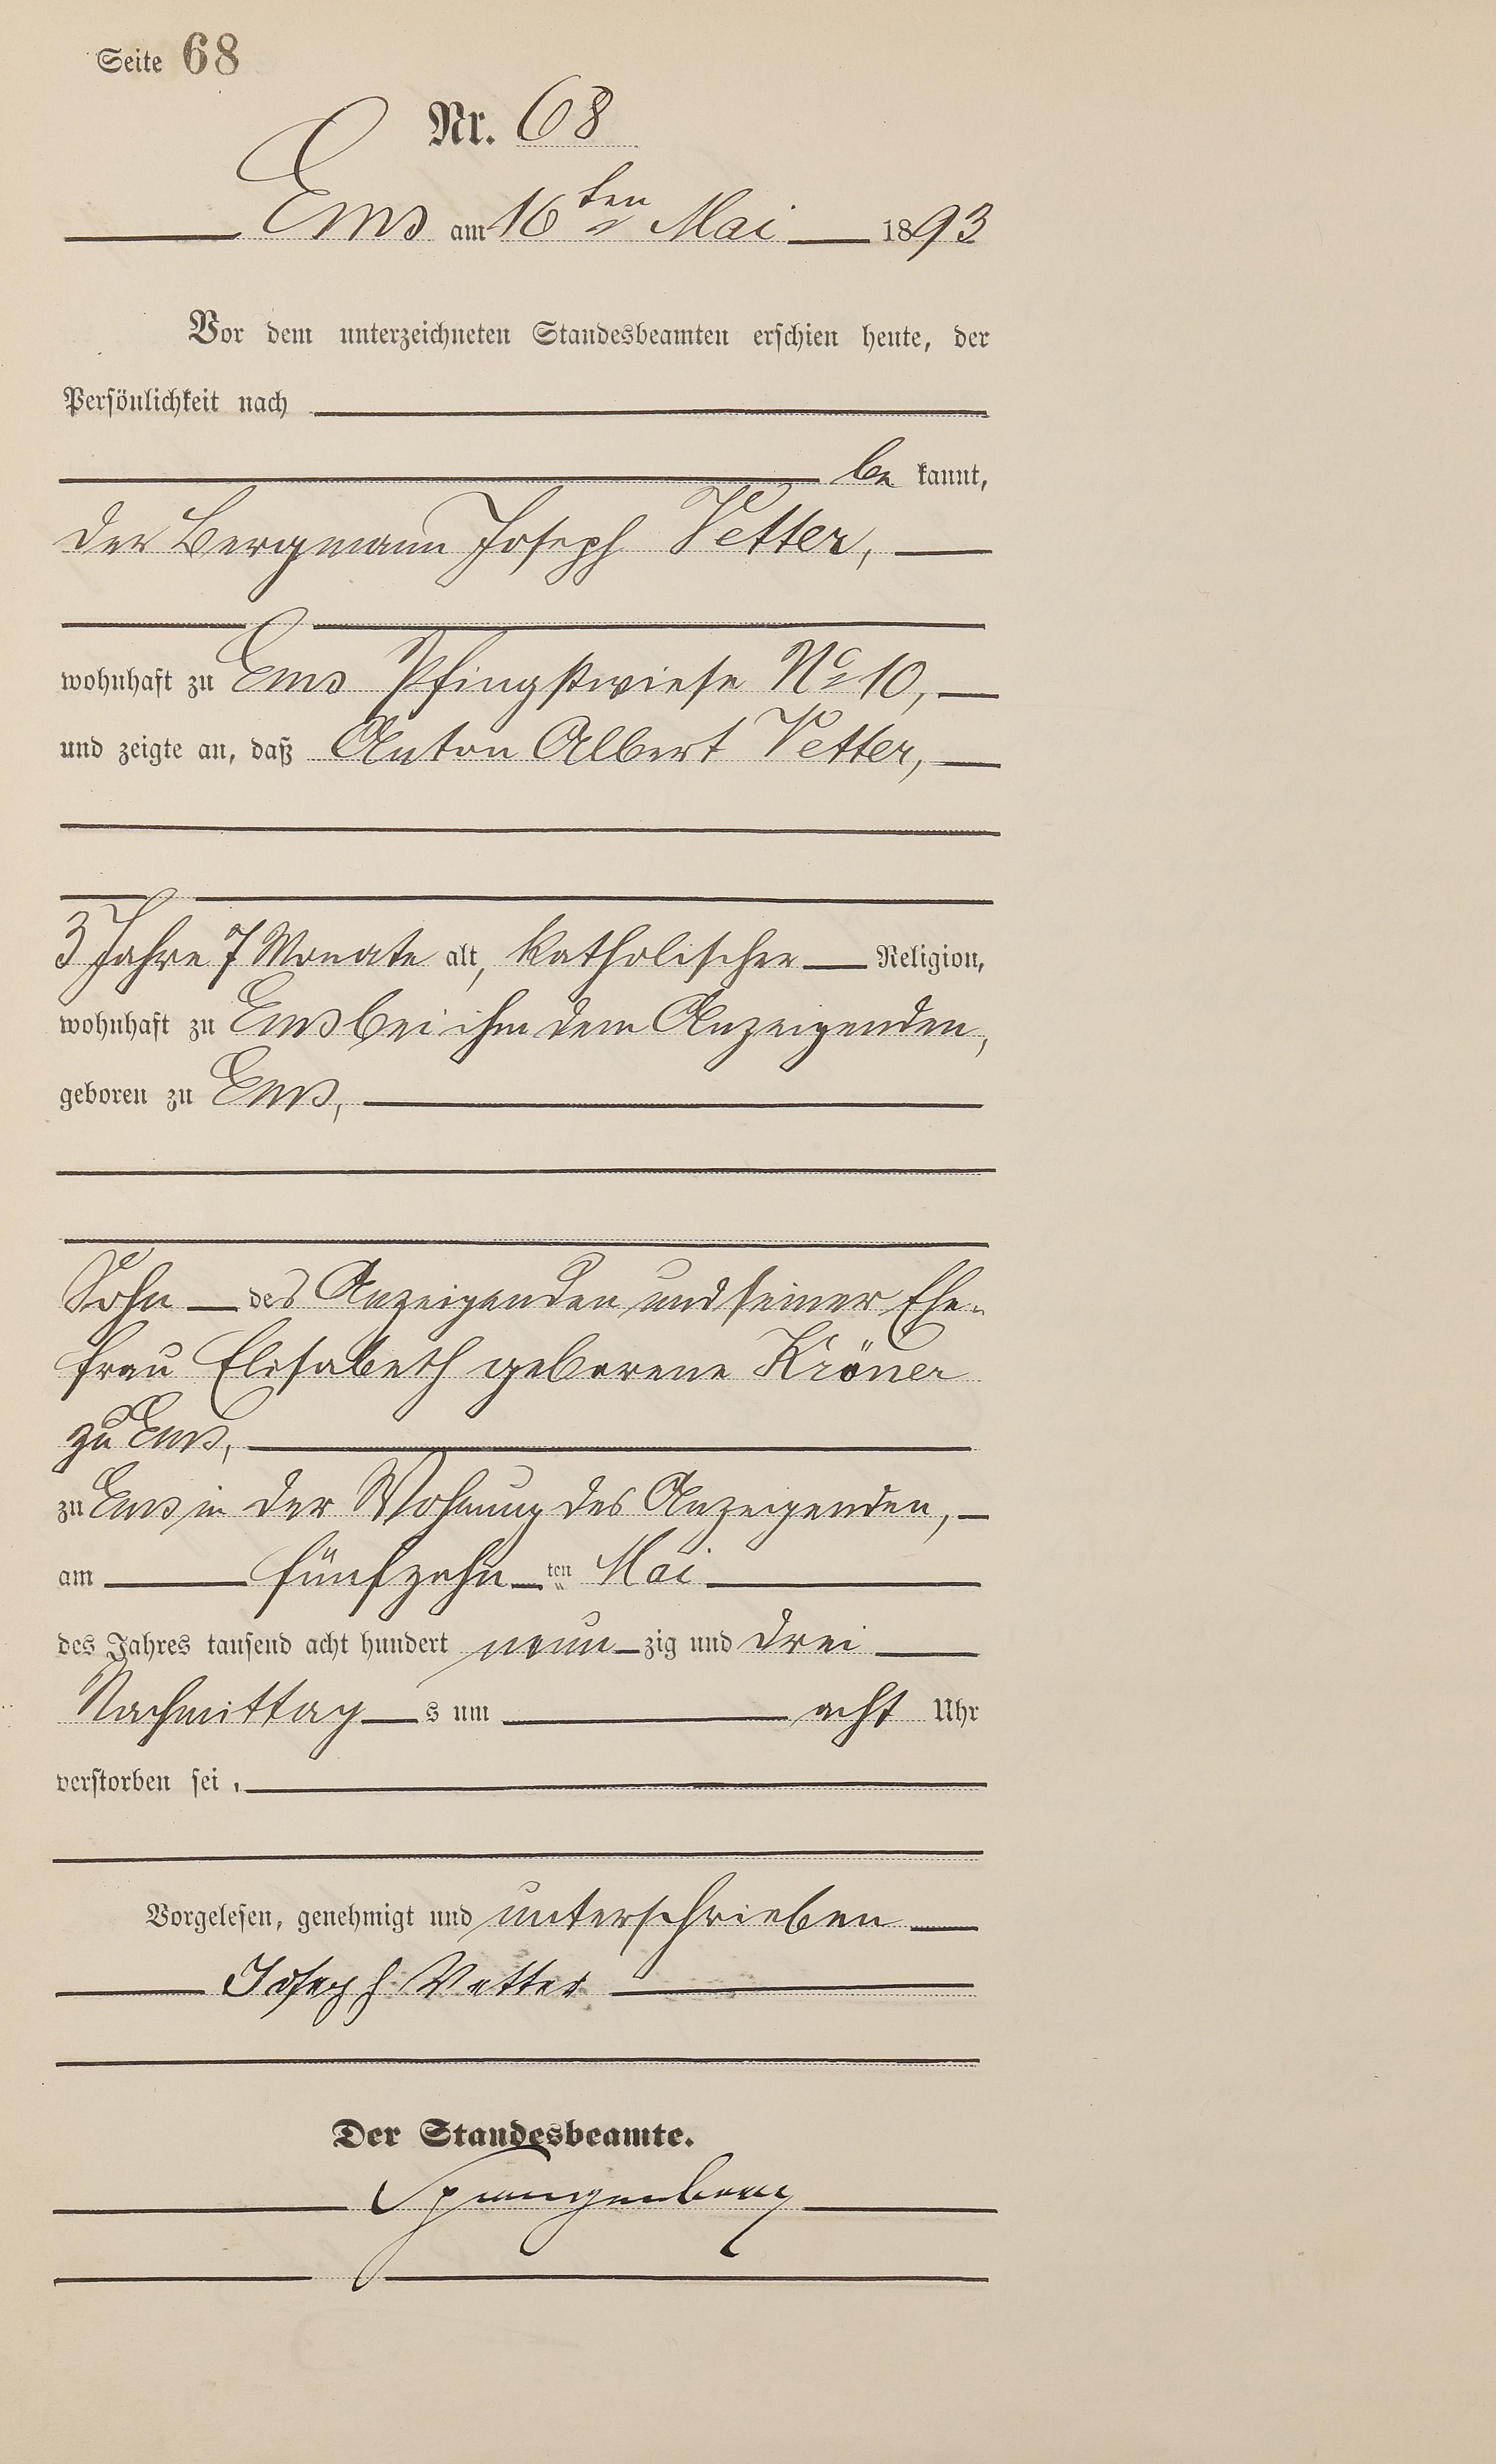 Seite 68
Nr. 68
Ems am 16ten Mai 1893
Vor dem unterzeichneten Standesbeamten erschien heute, der
Persönlichkeit nach
be kannt,
der Bergmann Joseph Vetter,
wohnhaft zu Ems Pfingstwiese No 10,
und zeigte an, daß Anton Albert Vetter,
3 Jahre 7 Monate alt, katholischer Religion,
wohnhaft zu Ems bei ihm dem Anzeigenden,
geboren zu Ems,
Sohn des Anzeigenden und seiner Ehe-
frau Elisabeth geborene Kröner
zu Ems,
zu Ems in der Wohnung des Anzeigenden,
am fünfzehn ten Mai
des Jahres tausend acht hundert neun zig und drei
Nachmittag s um acht Uhr
verstorben sei.
Vorgelesen, genehmigt und unterschrieben
Joseph Vetter
Der Standesbeamte.
Spangenberg